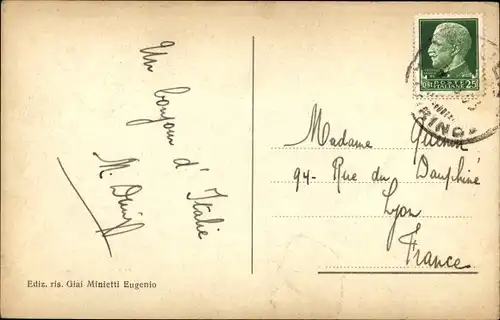 Un bonjour d'Italie
POSTE
ITALIANE
25
RINO
Madame
94- Rue du Dauphiné
Lyon
France
Ediz. ris. Giai Minietti Eugenio